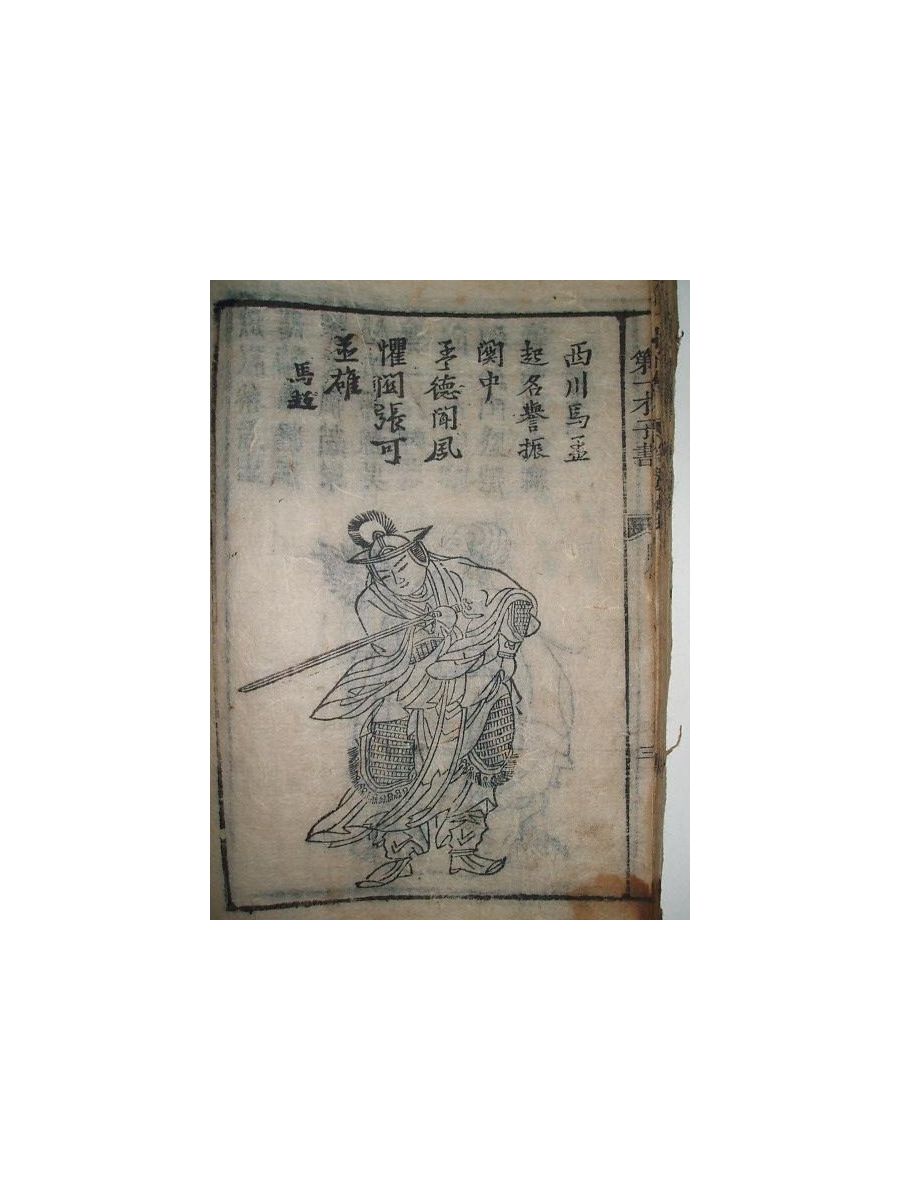 第一才子書
三
西川馬孟
起名譽振
関中
孟德聞風
懼關張可
並雄
馬超